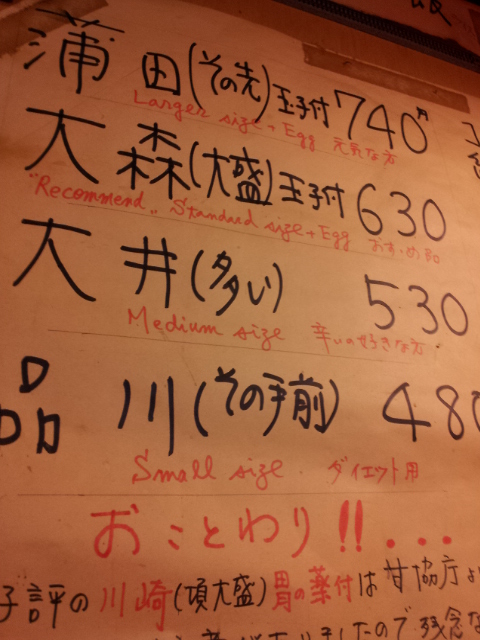 蒲田(その先)玉子付740円
Larger size + Egg 元気な方
大森(大盛)玉子付630
"Recommend" Standard size + Egg おすすめ品
大井(多い) 530
Medium size 辛いの好きな方
品川(その手前) 480
Small size. ダイエット用
おことわり!!...
子評の川崎(項大盛)胃の薬付は甘協庁よ
ましたので残念な